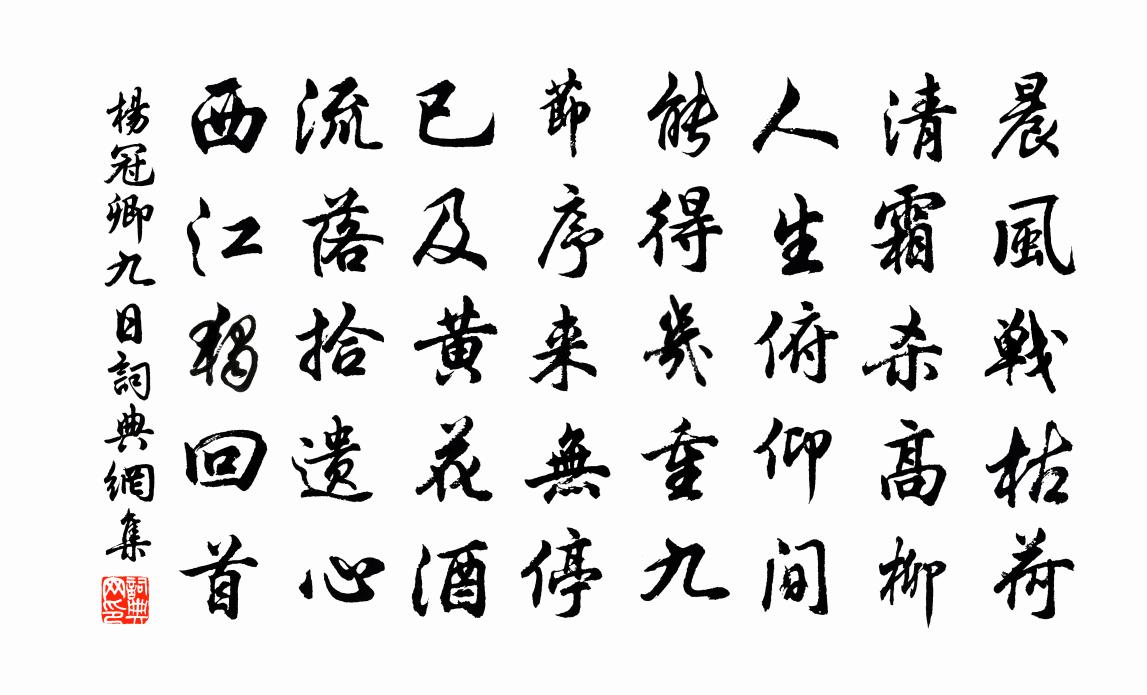 晨風戰枯荷
清霜杀高柳
人生俯仰间
能得幾重九
節序来無停
已及黄花酒
流落拾遗心
西江獨回首
楊冠卿九日詞典網集
詞典
网印